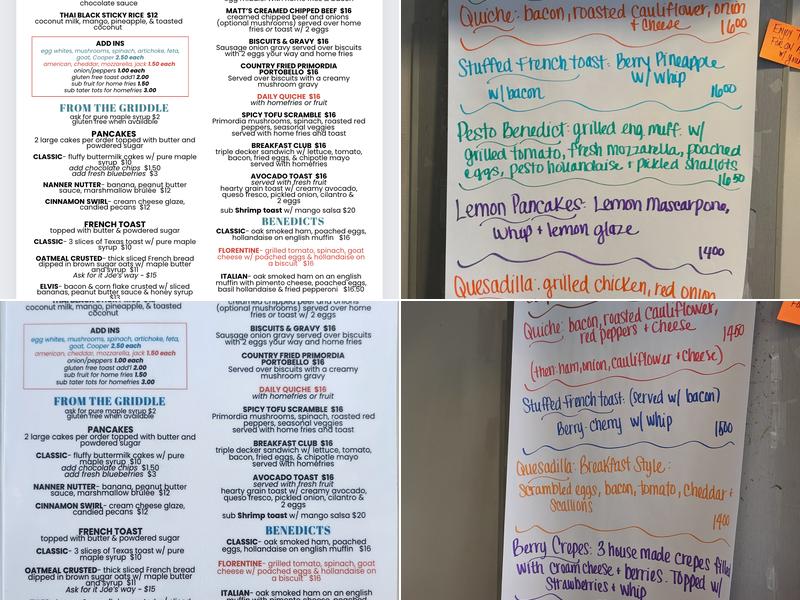 chocolate sauce
THAI BLACK STICKY RICE $12
coconut milk, mango, pineapple, & toasted
coconut
ADD INS
egg whites, mushrooms, spinach, artichoke, feta,
goat, Cooper 2.50 each
american, cheddar, mozzarella, jack 1.50 each
onion/peppers 1.00 each
gluten free toast add1 2.00
sub fruit for home fries 1.50
sub tater tots for homefries 3.00
FROM THE GRIDDLE
ask for pure maple syrup $2
gluten free when available
PANCAKES
2 large cakes per order topped with butter and
powdered sugar
CLASSIC- fluffy buttermilk cakes w/ pure maple
syrup $10
add chocolate chips $1.50
add fresh blueberries $3
NANNER NUTTER- banana, peanut butter
sauce, marshmallow brulée $12
CINNAMON SWIRL- cream cheese glaze,
candied pecans $12
FRENCH TOAST
topped with butter & powdered sugar
CLASSIC- 3 slices of Texas toast w/ pure maple
syrup $10
OATMEAL CRUSTED- thick sliced French bread
dipped in brown sugar oats w/ maple butter
and syrup $11
Ask for it Joe's way - $15
ELVIS- bacon & corn flake crusted w/ sliced
bananas, peanut butter sauce & honey syrup
$13
MATT'S CREAMED CHIPPED BEEF $16
creamed chipped beef and onions
(optional mushrooms) served over home
fries or toast w/ 2 eggs
BISCUITS & GRAVY $16
Sausage onion gravy served over biscuits
with 2 eggs your way and home fries
COUNTRY FRIED PRIMORDIA
PORTOBELLO $16
Served over biscuits with a creamy
mushroom gravy
DAILY QUICHE $16
with homefries or fruit
SPICY TOFU SCRAMBLE $16
Primordia mushrooms, spinach, roasted red
peppers, seasonal veggies
served with home fries and toast
BREAKFAST CLUB $16
triple decker sandwich w/ lettuce, tomato,
bacon, fried eggs, & chipotle mayo
served with homefries
AVOCADO TOAST $16
served with fresh fruit
hearty grain toast w/ creamy avocado,
queso fresco, pickled onion, cilantro &
2 eggs
sub Shrimp toast w/ mango salsa $20
BENEDICTS
CLASSIC- oak smoked ham, poached eggs,
hollandaise on english muffin $16
FLORENTINE- grilled tomato, spinach, goat
cheese w/ poached eggs & hollandaise on
a biscuit $16
ITALIAN- oak smoked ham on an english
muffin with pimento cheese, poached eggs,
basil hollandaise & fried pepperoni $16.50
Quiche: bacon, roasted cauliflower, onion
+ cheese 16.00
ENJOY
FOR
ON A
Stuffed French toast: Berry Pineapple
w/ whip
w/ bacon 16.00
Pesto Benedict: grilled eng. muff. w/
grilled tomato, fresh mozzarella, poached
eggs, pesto hollandaise + pickled shallots
16.50
Lemon Pancakes: Lemon Mascarpone,
whip + lemon glaze
14.00
Quesadilla: grilled chicken, red onion
coconut milk, mango, pineapple, & toasted
coconut
ADD INS
egg whites, mushrooms, spinach, artichoke, feta,
goat, Cooper 2.50 each
american, cheddar, mozzarella, jack 1.50 each
onion/peppers 1.00 each
gluten free toast add1 2.00
sub fruit for home fries 1.50
sub tater tots for homefries 3.00
FROM THE GRIDDLE
ask for pure maple syrup $2
gluten free when available
PANCAKES
2 large cakes per order topped with butter and
powdered sugar
CLASSIC- fluffy buttermilk cakes w/ pure
maple syrup $10
add chocolate chips $1.50
add fresh blueberries $3
NANNER NUTTER- banana, peanut butter
sauce, marshmallow brulée $12
CINNAMON SWIRL- cream cheese glaze,
candied pecans $12
FRENCH TOAST
topped with butter & powdered sugar
CLASSIC- 3 slices of Texas toast w/ pure
maple syrup $10
OATMEAL CRUSTED- thick sliced French bread
dipped in brown sugar oats w/ maple butter
and syrup $11
Ask for it Joe's way - $15
creamed chipped beef and onions
(optional mushrooms) served over home
fries or toast w/ 2 eggs
BISCUITS & GRAVY $16
Sausage onion gravy served over biscuits
with 2 eggs your way and home fries
COUNTRY FRIED PRIMORDIA
PORTOBELLO $16
Served over biscuits with a creamy
mushroom gravy
DAILY QUICHE $16
with homefries or fruit
SPICY TOFU SCRAMBLE $16
Primordia mushrooms, spinach, roasted red
peppers, seasonal veggies
served with home fries and toast
BREAKFAST CLUB $16
triple decker sandwich w/ lettuce, tomato,
bacon, fried eggs, & chipotle mayo
served with homefries
AVOCADO TOAST $16
served with fresh fruit
hearty grain toast w/ creamy avocado,
queso fresco, pickled onion, cilantro &
2 eggs
sub Shrimp toast w/ mango salsa $20
BENEDICTS
CLASSIC- oak smoked ham, poached
eggs, hollandaise on english muffin $16
FLORENTINE- grilled tomato, spinach, goat
cheese w/ poached eggs & hollandaise on
a biscuit $16
ITALIAN- oak smoked ham on an english
muffin with pimento cheese, poached
Quiche: bacon, roasted cauliflower,
red peppers + cheese 14.50
(then: ham, onion, cauliflower + cheese)
Stuffed French toast: (served w/ bacon)
Berry-cherry w/ whip 15.00
Quesadilla: Breakfast Style:
Scrambled eggs, bacon, tomato, cheddar +
Scallions
14.00
Berry Crepes: 3 house made crepes filled
with cream cheese + berries. Topped w/
Strawberries + whip